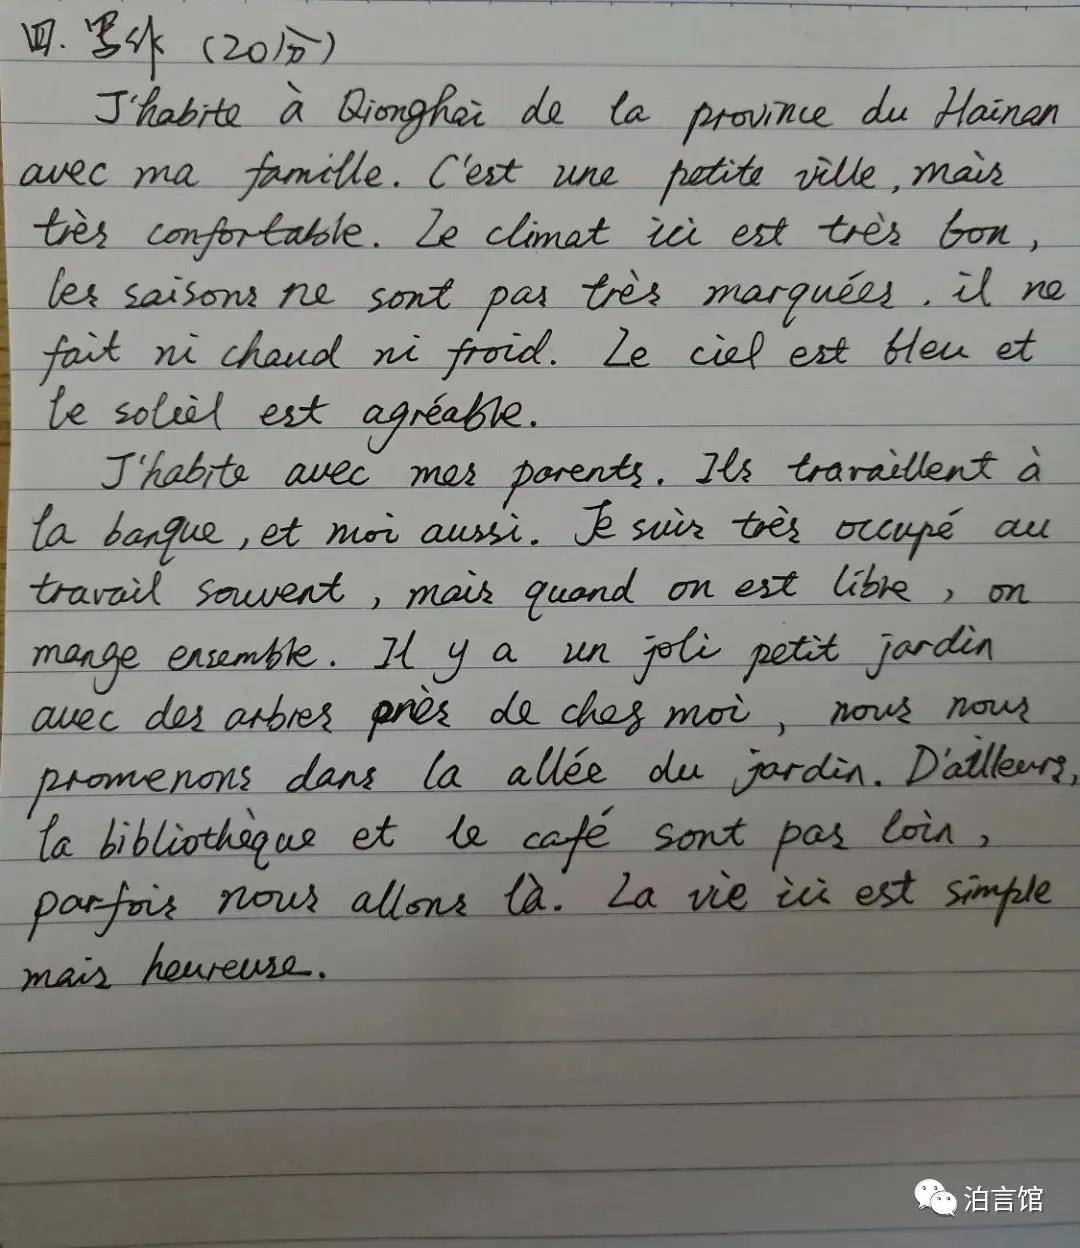 四. 写作 (20分)
J'habite à Qionghai de la province du Hainan
avec ma famille. C'est une petite ville, mais
très confortable. Le climat ici est très bon,
les saisons ne sont pas très marquées, il ne
fait ni chaud ni froid. Le ciel est bleu et
le solièl est agréable.
J'habite avec mes parents. Ils travaillent à
la banque, et moi aussi. Je suis très occupé au
travail souvent, mais quand on est libre, on
mange ensemble. Il y a un joli petit jardin
avec des arbres près de chez moi, nous nous
promenons dans la allée du jardin. D'ailleurs,
la bibliothèque et le café sont pas loin,
parfois nous allons là. La vie ici est simple
mais heureuse.
泊言馆